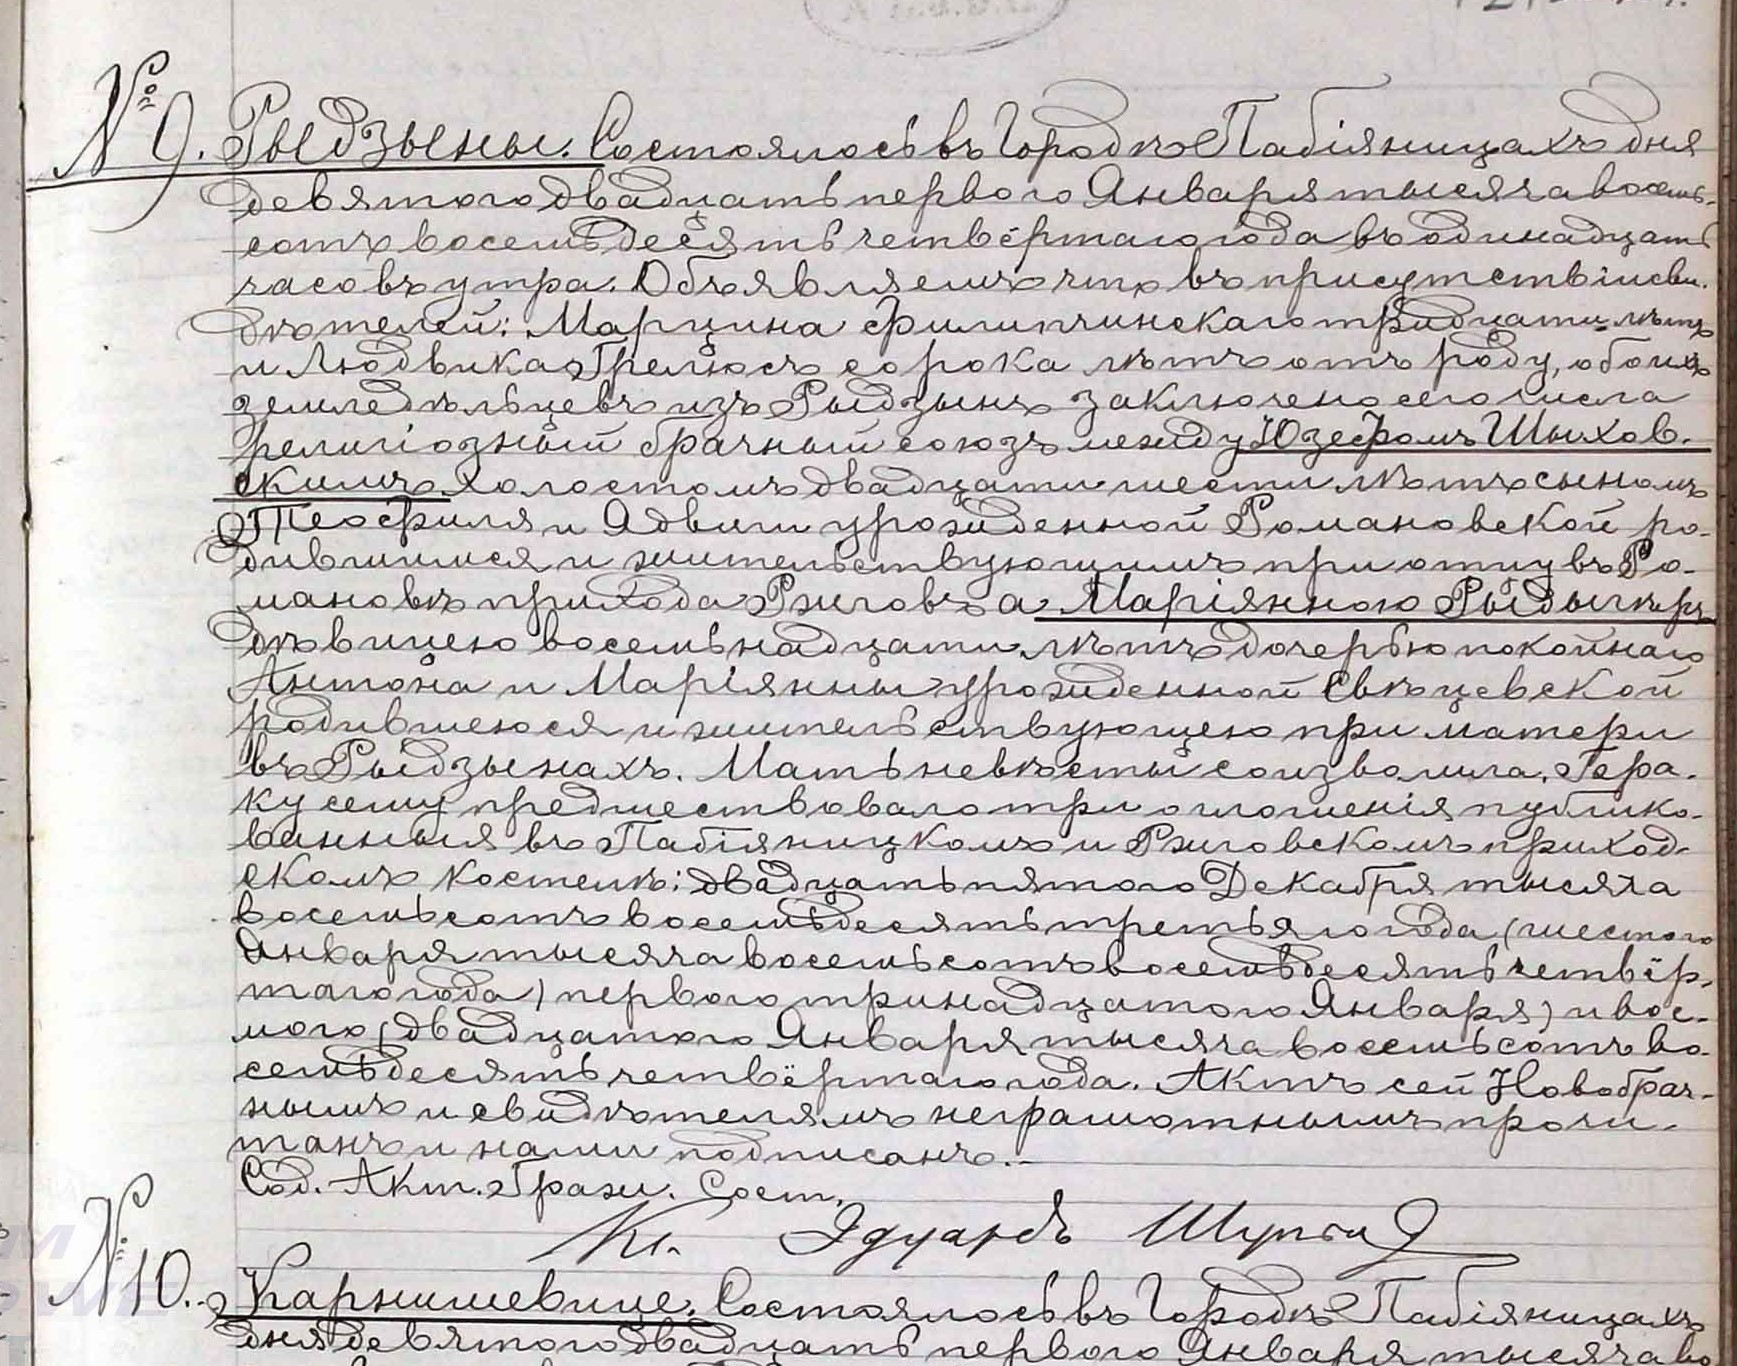 № 9. Рыдзыны. Состоялось въ Городѣ Пабіяницахъ дня
девятого двадцать первого Января тысяча восемь-
сотъ восемьдесять четвёртаго года въ одинадцать
часовъ утра. Объявляемъ что въ присутствіи сви-
дѣтелей: Марцина Филипчинскаго тридцати лѣтъ
и Людвика Грелюсъ сорока лѣтъ отъ роду, обоихъ
земледѣльцевъ изъ Рыдзынъ заключено сего числа
религіозный брачный союзъ между Юзефомъ Шыхов-
скимъ холостомъ двадцати шести лѣтъ сыномъ
Теофиля и Ядвиги урожденной Романовской ро-
дившимся и жительствующимъ при отцу въ Ро-
мановѣ прихода Ржговъ а Маріянною Рыдыгѣръ
дѣвицею восемьнадцати лѣтъ дочерью покойнаго
Антона и Маріянны урожденной Свѣцевской
родившеюся и жительствующею при матери
въ Рыдзынахъ. Мать невѣсты соизволила. Бра-
ку сему предшествовало три оглошенія публико-
ванныя въ Пабіяницкомъ и Ржговскомъ приход-
скомъ костелѣ: двадцать пятого Декабря тысяча
восемьсотъ восемьдесять третьяго года (шестого
Января тысяча восемьсотъ восемьдесять четвёр-
таго года) первого тринадцатого Января) и вос-
мого (двадцатого Января тысяча восемьсотъ во-
семьдесять четвёртаго года. Актъ сей Новобрач-
нымъ и свидѣтелямъ неграмотнымъ прочи-
танъ и нами подписанъ.-
Сод. Акт. Граж. Сост.
Кс. Эдуардъ
№ 10. Карнишевице. Состоялось въ Городѣ Пабіяницахъ
дня девятого двадцать первого Января тысяча во